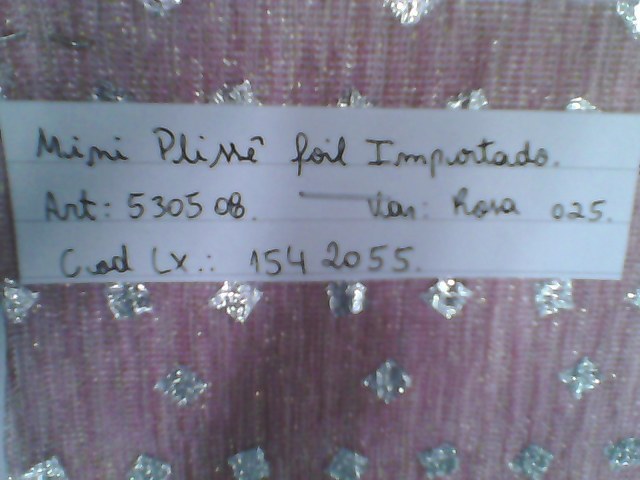 Mini Plissê foil Importado.
Art: 530508. Var: Rosa 025.
Cod Lx.: 1542055.